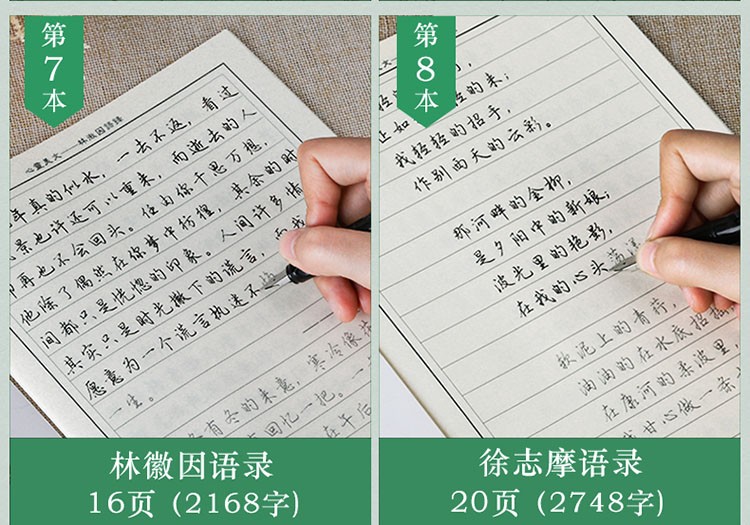 第
7
本
心灵美文——林徽因语录
年真的似水，一去不返，看过
景也许还可以重来，而逝去的人
却再也不会回头。任由你千思万想，
他除了偶然在你梦中彷徨，其余的时
间都只是恍惚的印象。人间许多情
其实只是时光撒下的谎言，而我
愿意为一个谎言执迷不
一生。
有冬的来意，寒冷像
回忆一把。一
在午后
林徽因语录
16页（2168字）
第
8
本
轻的来；
正如
我轻轻的招手，
作别西天的云彩。
那河畔的金柳，
是夕阳中的新娘；
波光里的艳影，
在我的心头荡漾
软泥上的青荇，
油油的在水底招摇
在康河的柔波里，
我甘心做一条
徐志摩语录
20页（2748字）